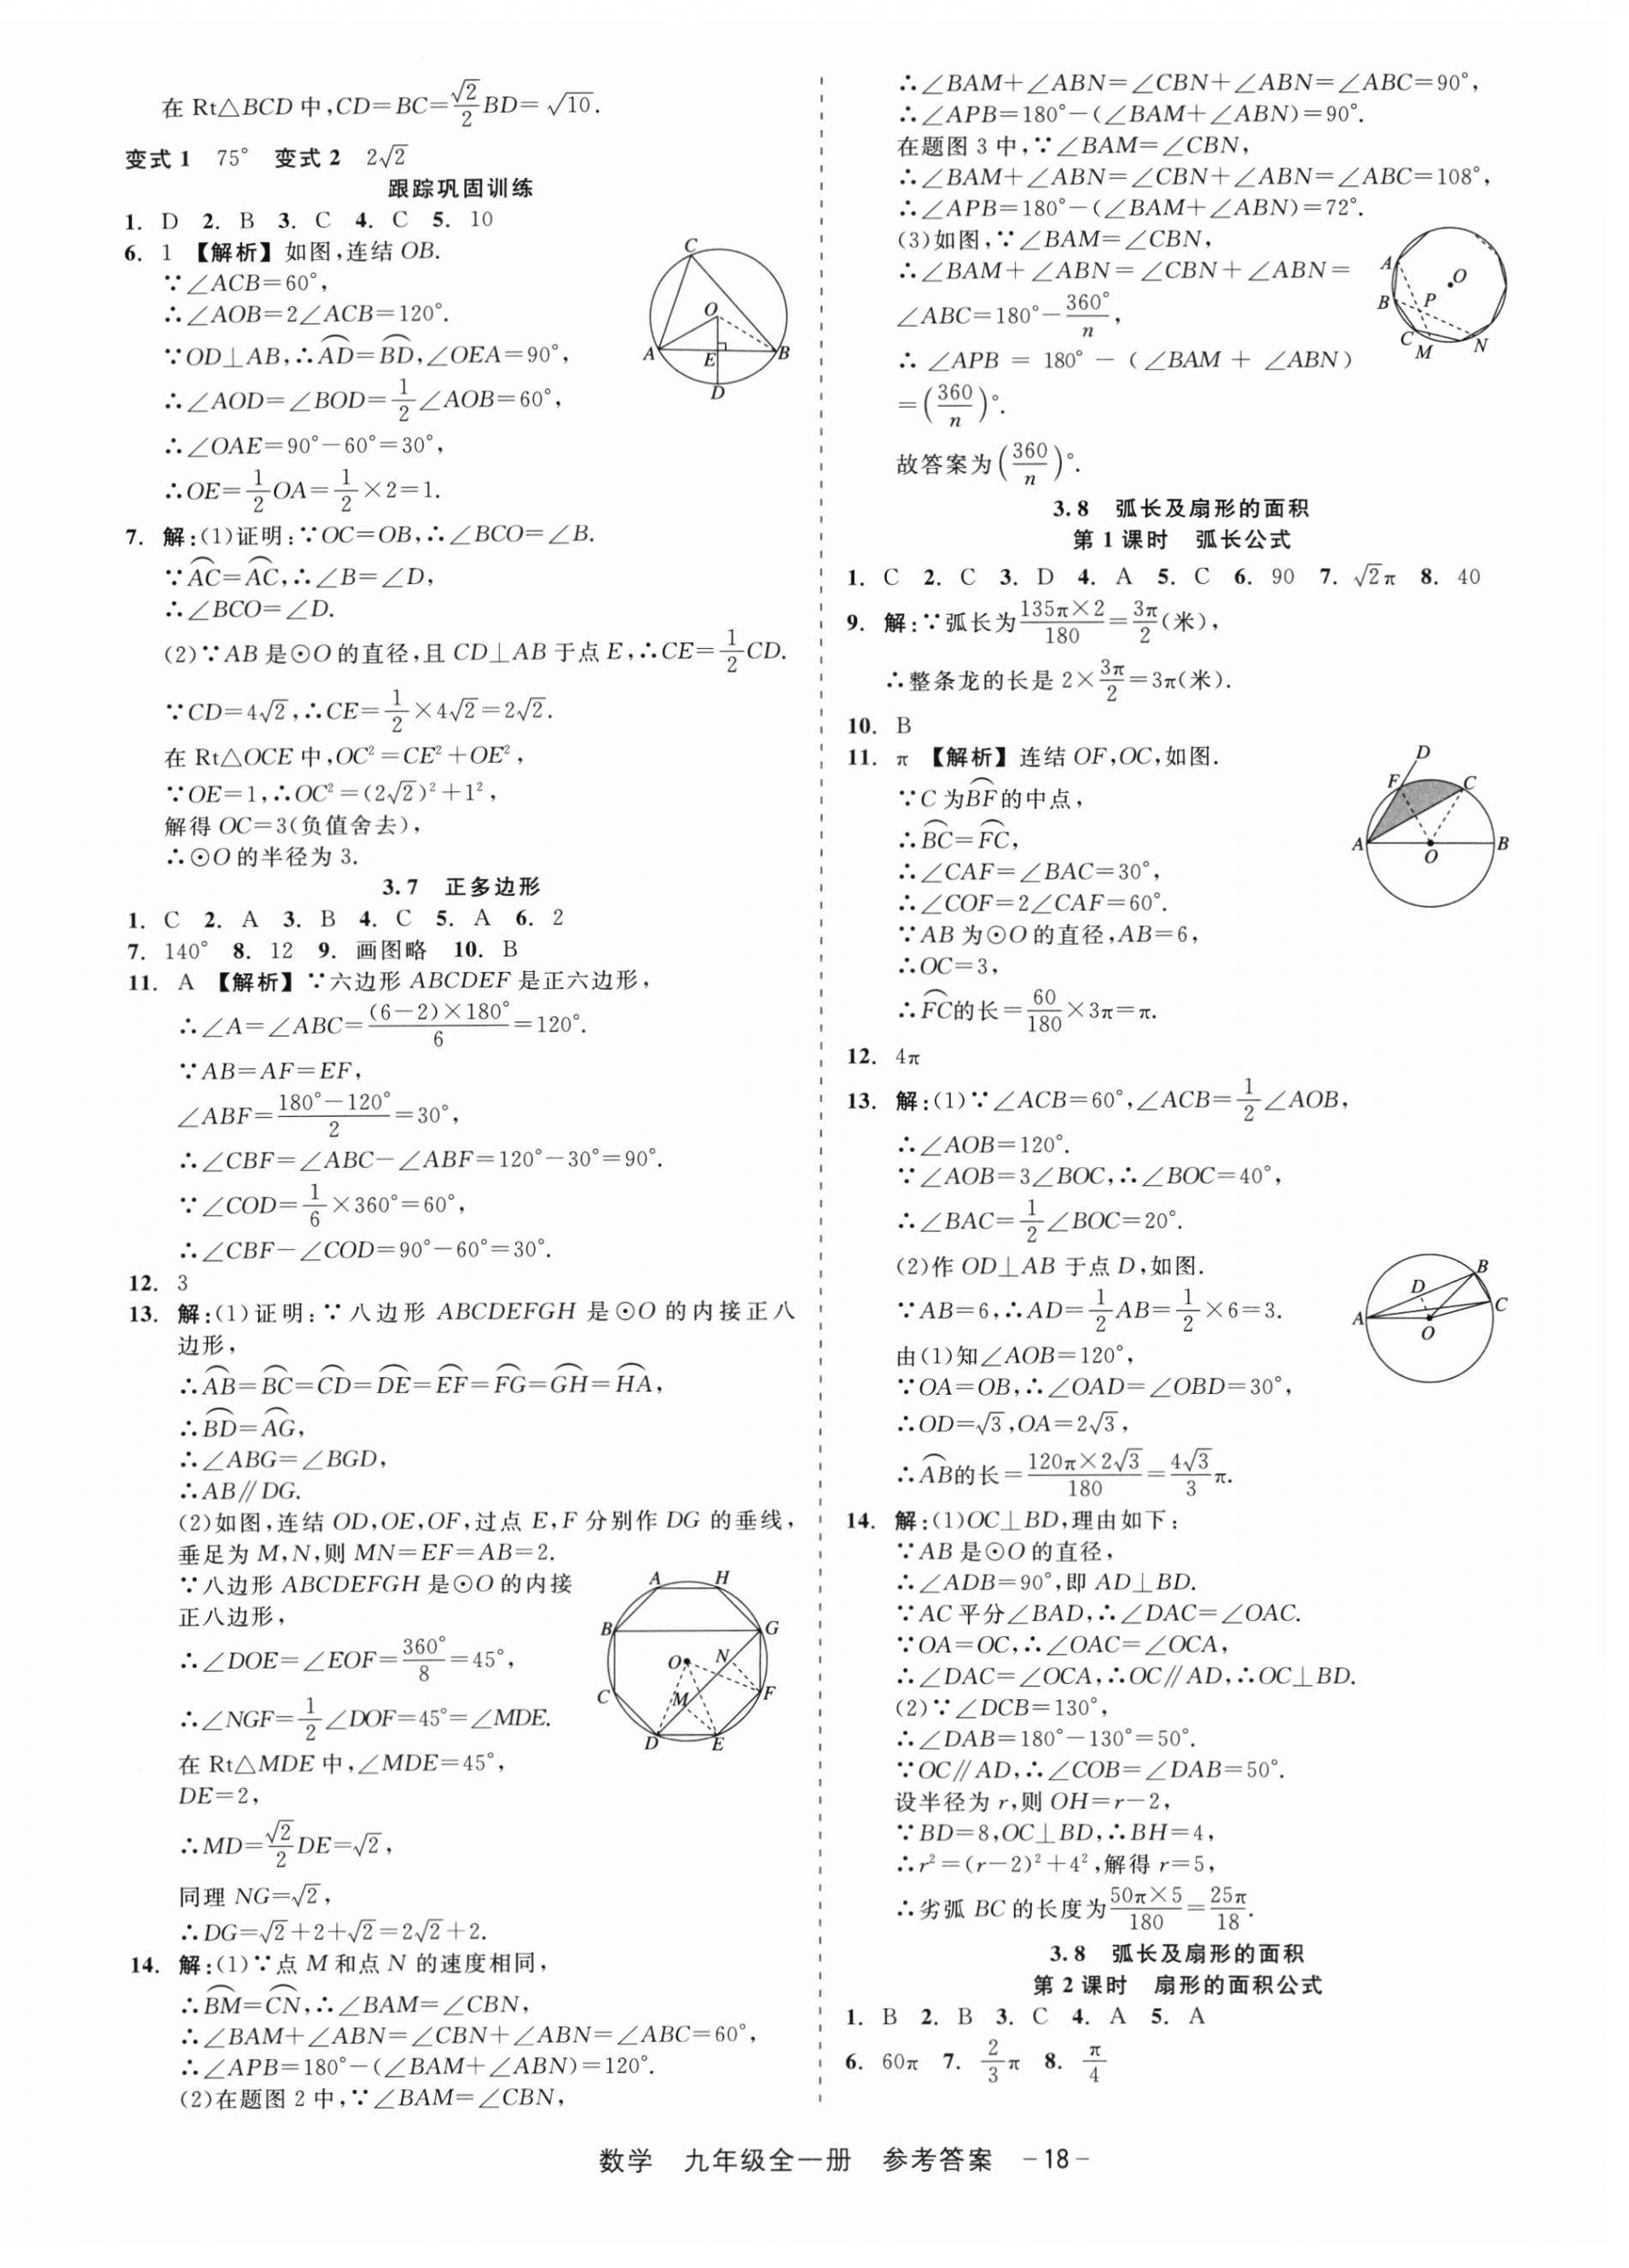 在 Rt△BCD 中,CD=BC=√2/2 BD=√10.
变式 1 75° 变式 2 2√2
跟踪巩固训练
1. D 2. B 3. C 4. C 5. 10
6. 1 【解析】如图,连结 OB.
∵∠ACB=60°,
∴∠AOB=2∠ACB=120°.
∵OD⊥AB,∴A͡D=B͡D,∠OEA=90°,
∴∠AOD=∠BOD=1/2∠AOB=60°,
∴∠OAE=90°-60°=30°,
∴OE=1/2 OA=1/2×2=1.
C
O
A
E
B
D
7. 解:(1)证明:∵OC=OB,∴∠BCO=∠B.
∵A͡C=A͡C,∴∠B=∠D,
∴∠BCO=∠D.
(2)∵AB 是⊙O 的直径,且 CD⊥AB 于点 E,∴CE=1/2 CD.
∵CD=4√2,∴CE=1/2×4√2=2√2.
在 Rt△OCE 中,OC²=CE²+OE²,
∵OE=1,∴OC²=(2√2)²+1²,
解得 OC=3(负值舍去),
∴⊙O 的半径为 3.
3.7 正多边形
1. C 2. A 3. B 4. C 5. A 6. 2
7. 140° 8. 12 9. 画图略 10. B
11. A 【解析】∵六边形 ABCDEF 是正六边形,
∴∠A=∠ABC=(6-2)×180°/6=120°.
∵AB=AF=EF,
∠ABF=(180°-120°)/2=30°,
∴∠CBF=∠ABC-∠ABF=120°-30°=90°.
∵∠COD=1/6×360°=60°,
∴∠CBF-∠COD=90°-60°=30°.
12. 3
13. 解:(1)证明:∵八边形 ABCDEFGH 是⊙O 的内接正八
边形,
∴A͡B=B͡C=C͡D=D͡E=E͡F=F͡G=G͡H=H͡A,
∴B͡D=A͡G,
∴∠ABG=∠BGD,
∴AB∥DG.
(2)如图,连结 OD,OE,OF,过点 E,F 分别作 DG 的垂线,
垂足为 M,N,则 MN=EF=AB=2.
∵八边形 ABCDEFGH 是⊙O 的内接
正八边形,
∴∠DOE=∠EOF=360°/8=45°,
∴∠NGF=1/2∠DOF=45°=∠MDE.
在 Rt△MDE 中,∠MDE=45°,
DE=2,
∴MD=√2/2 DE=√2,
同理 NG=√2,
∴DG=√2+2+√2=2√2+2.
A H
B G
O N
C M F
D E
14. 解:(1)∵点 M 和点 N 的速度相同,
∴B͡M=C͡N,∴∠BAM=∠CBN,
∴∠BAM+∠ABN=∠CBN+∠ABN=∠ABC=60°,
∴∠APB=180°-(∠BAM+∠ABN)=120°.
(2)在题图 2 中,∵∠BAM=∠CBN,
∴∠BAM+∠ABN=∠CBN+∠ABN=∠ABC=90°,
∴∠APB=180°-(∠BAM+∠ABN)=90°.
在题图 3 中,∵∠BAM=∠CBN,
∴∠BAM+∠ABN=∠CBN+∠ABN=∠ABC=108°,
∴∠APB=180°-(∠BAM+∠ABN)=72°.
(3)如图,∵∠BAM=∠CBN,
∴∠BAM+∠ABN=∠CBN+∠ABN=
∠ABC=180°-360°/n,
∴ ∠APB = 180° - (∠BAM + ∠ABN)
=(360/n)°.
故答案为(360/n)°.
A O
B P
C M N
3.8 弧长及扇形的面积
第 1 课时 弧长公式
1. C 2. C 3. D 4. A 5. C 6. 90 7. √2π 8. 40
9. 解:∵弧长为135π×2/180=3π/2(米),
∴整条龙的长是 2×3π/2=3π(米).
10. B
11. π 【解析】连结 OF,OC,如图.
∵C 为B͡F的中点,
∴B͡C=F͡C,
∴∠CAF=∠BAC=30°,
∴∠COF=2∠CAF=60°.
∵AB 为⊙O 的直径,AB=6,
∴OC=3,
∴F͡C的长=60/180×3π=π.
D
F C
A O B
12. 4π
13. 解:(1)∵∠ACB=60°,∠ACB=1/2∠AOB,
∴∠AOB=120°.
∵∠AOB=3∠BOC,∴∠BOC=40°,
∴∠BAC=1/2∠BOC=20°.
(2)作 OD⊥AB 于点 D,如图.
∵AB=6,∴AD=1/2 AB=1/2×6=3.
由(1)知∠AOB=120°,
∵OA=OB,∴∠OAD=∠OBD=30°,
∴OD=√3,OA=2√3,
∴A͡B的长=120π×2√3/180=4√3/3 π.
B
D C
A O
14. 解:(1)OC⊥BD,理由如下:
∵AB 是⊙O 的直径,
∴∠ADB=90°,即 AD⊥BD.
∵AC 平分∠BAD,∴∠DAC=∠OAC.
∵OA=OC,∴∠OAC=∠OCA,
∴∠DAC=∠OCA,∴OC∥AD,∴OC⊥BD.
(2)∵∠DCB=130°,
∴∠DAB=180°-130°=50°.
∵OC∥AD,∴∠COB=∠DAB=50°.
设半径为 r,则 OH=r-2,
∵BD=8,OC⊥BD,∴BH=4,
∴r²=(r-2)²+4²,解得 r=5,
∴劣弧 BC 的长度为50π×5/180=25π/18.
3.8 弧长及扇形的面积
第 2 课时 扇形的面积公式
1. B 2. B 3. C 4. A 5. A
6. 60π 7. 2/3 π 8. π/4
数学 九年级全一册 参考答案 -18-